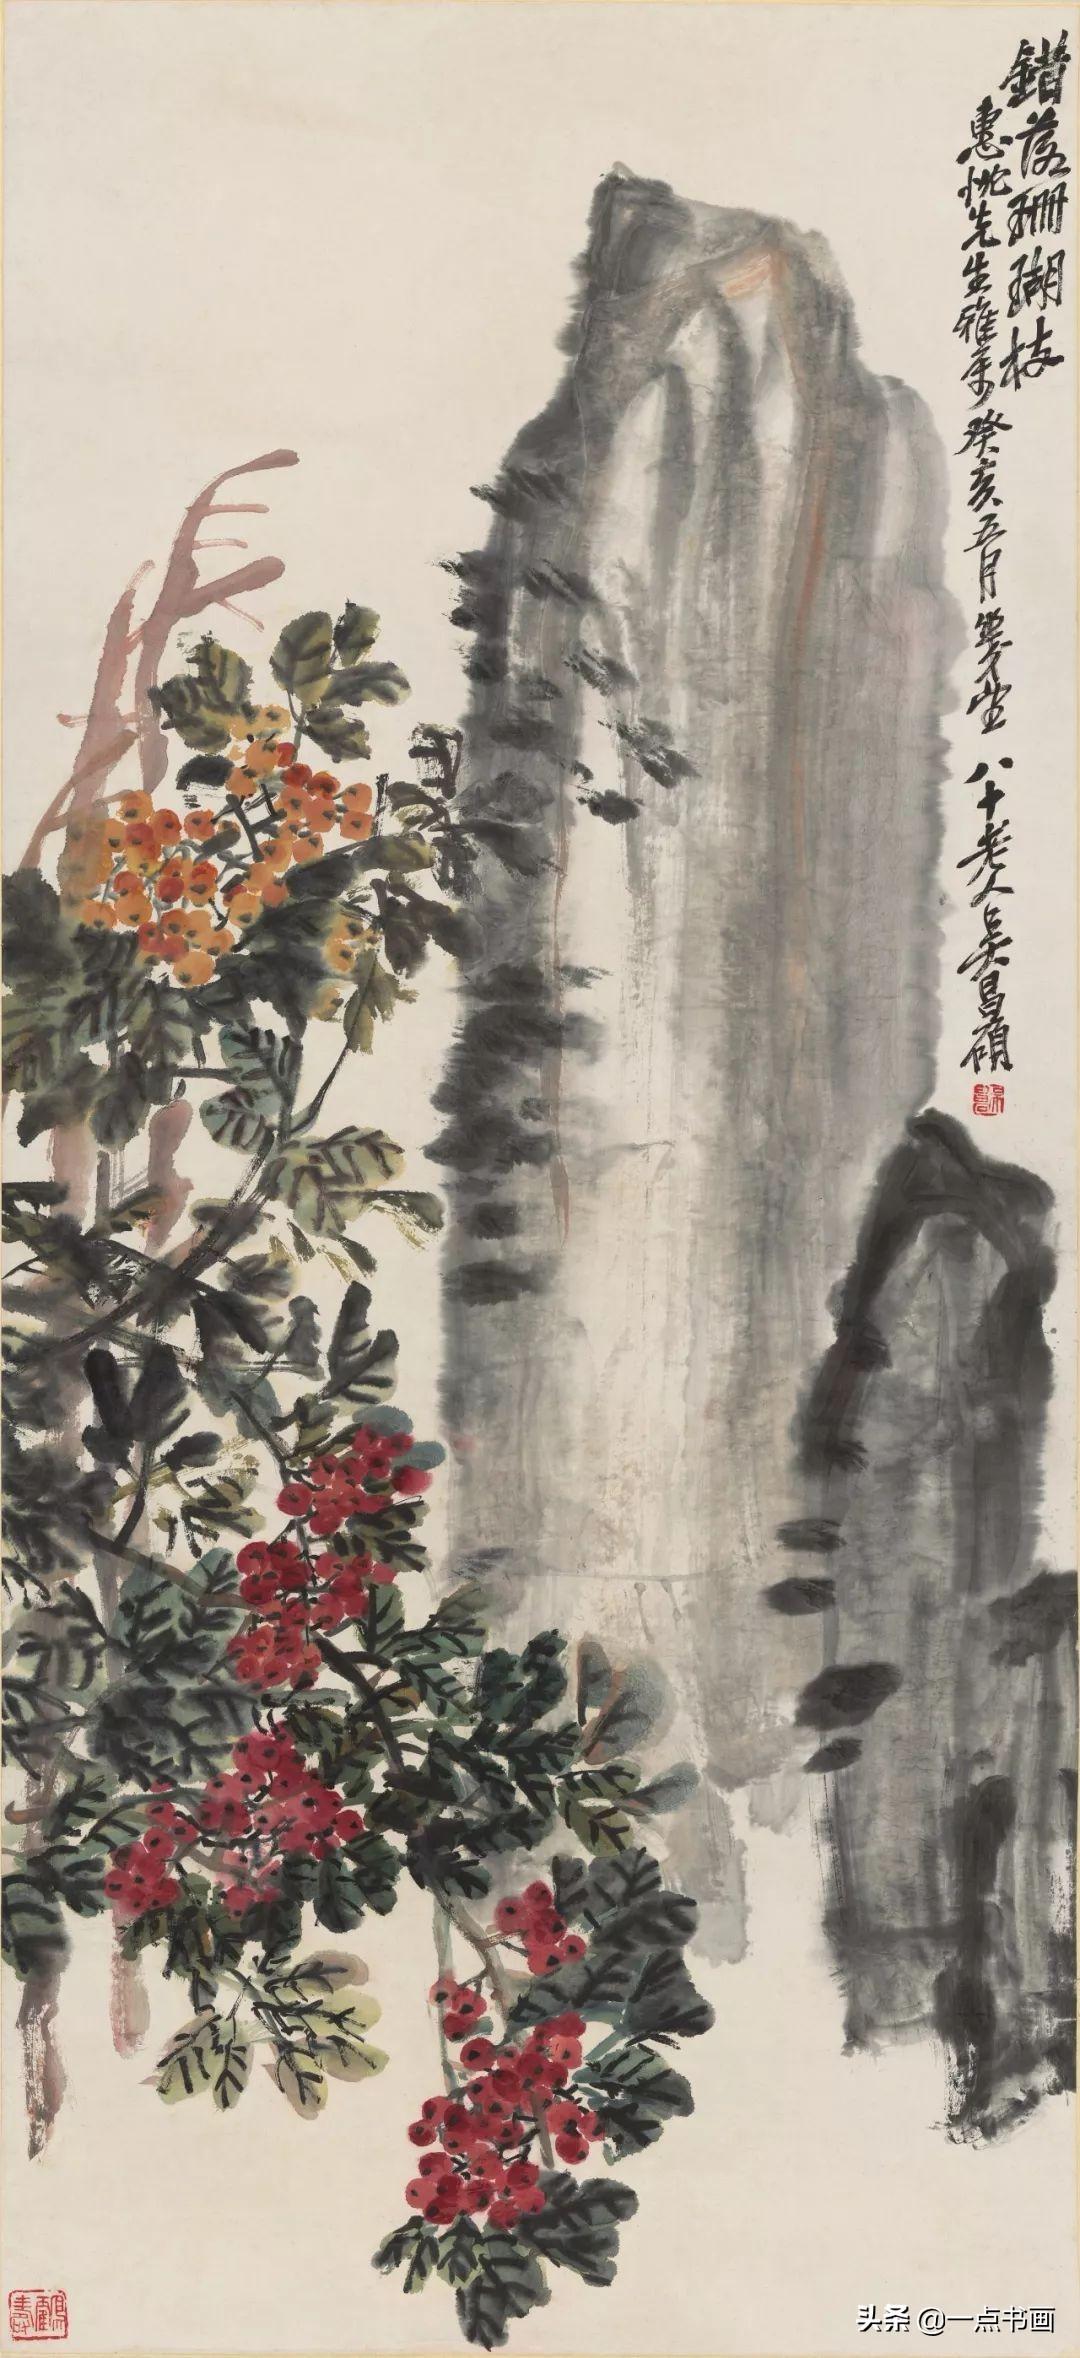 錯落珊瑚枝
惠忱先生雅属癸亥五月幾望 八十老人吳昌碩
头条 @一点书画